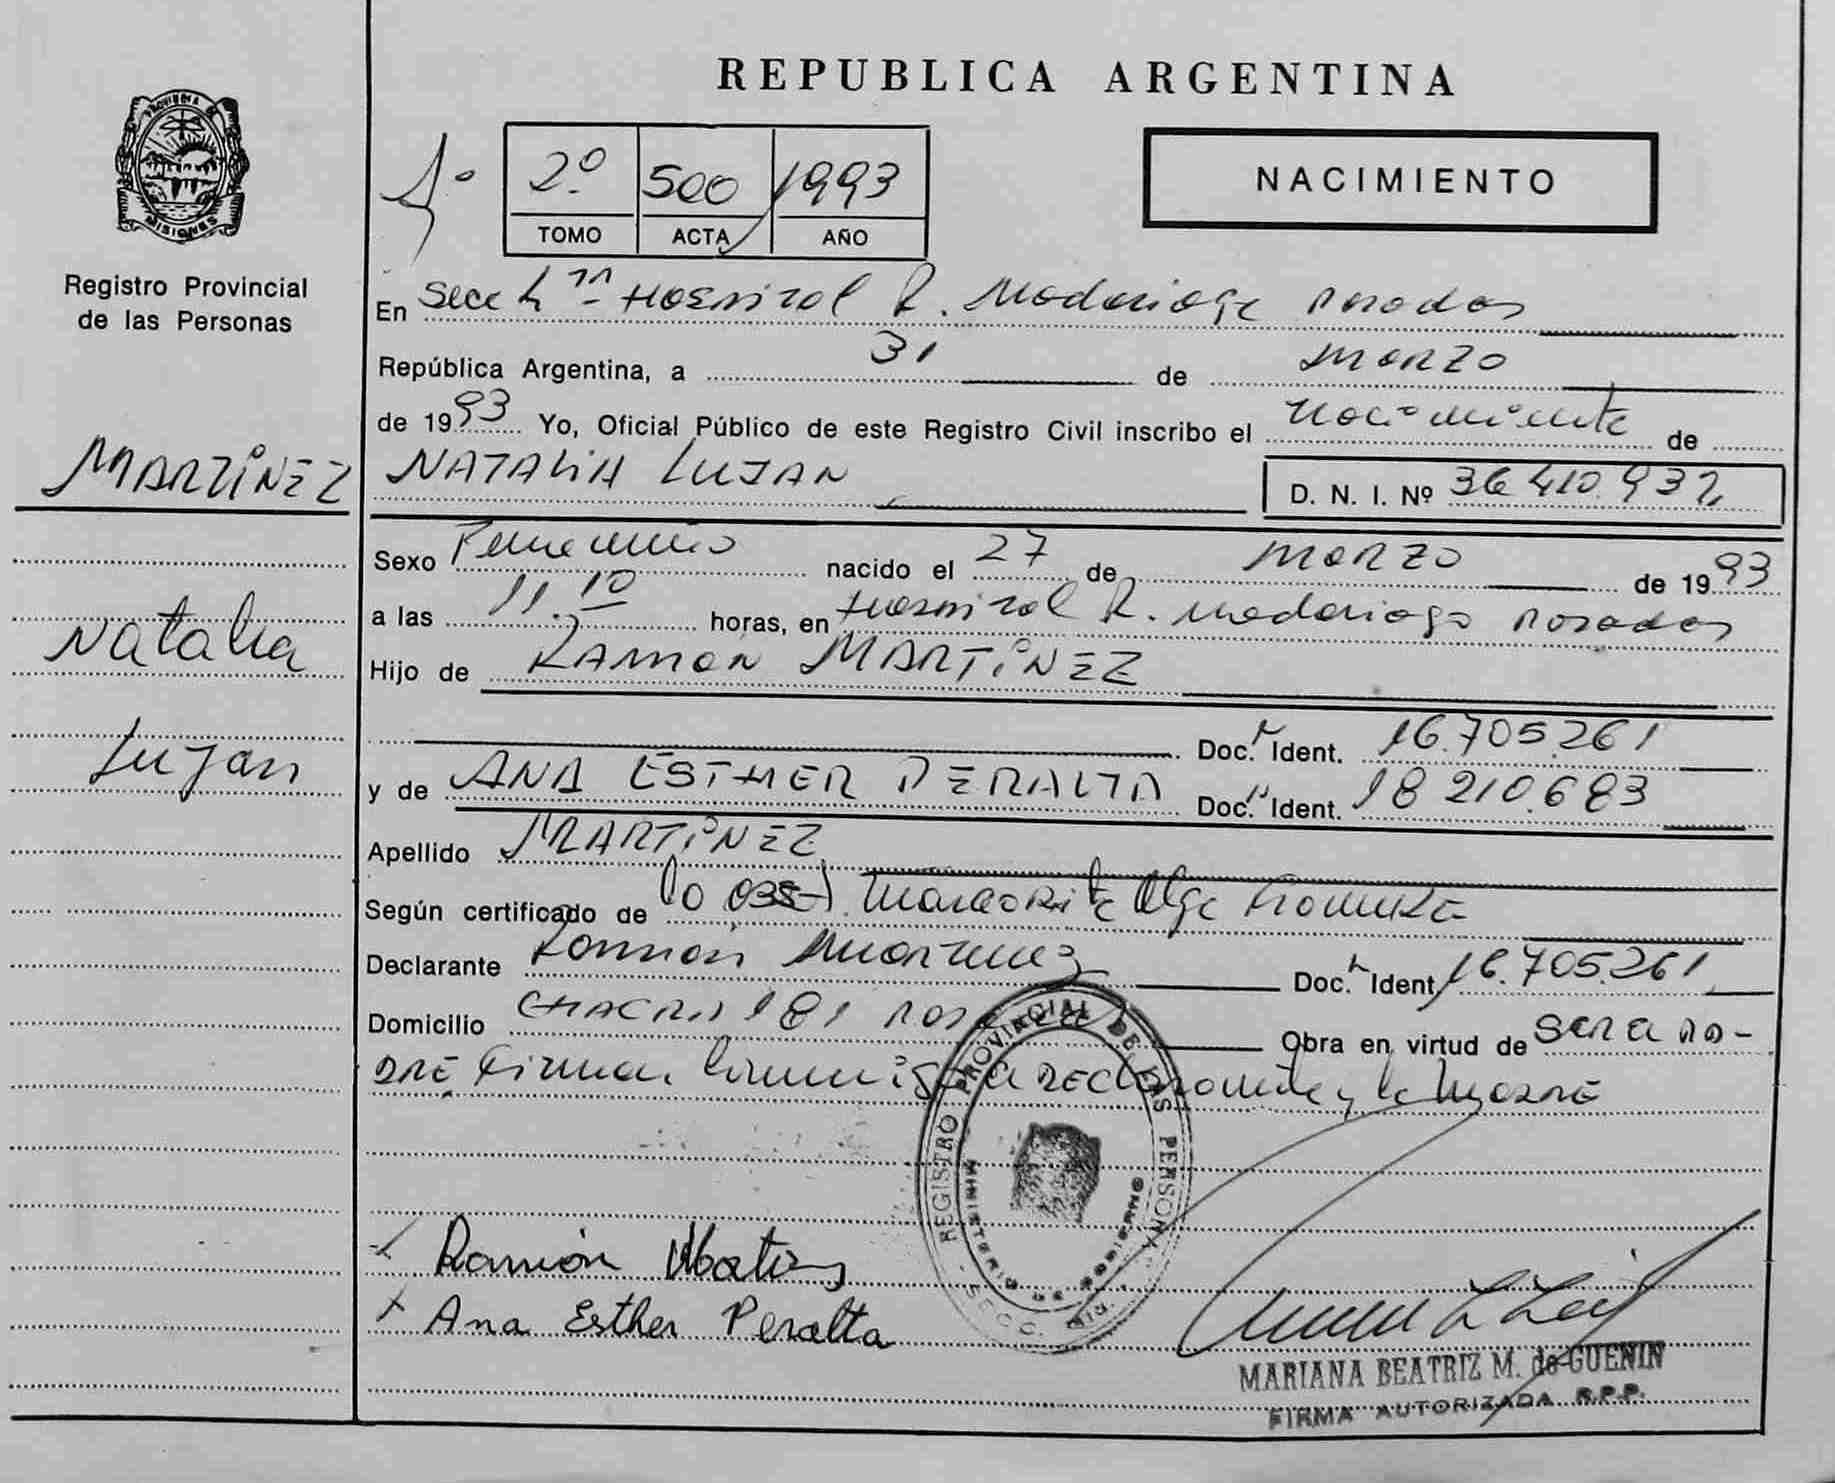 REPUBLICA ARGENTINA
PROVINCIA DE
MISIONES
Registro Provincial
de las Personas
2º 500 1993
TOMO ACTA AÑO
NACIMIENTO
En Secc Hospital R. Madariaga Posadas
República Argentina, a 31 de marzo
de 1993 Yo, Oficial Público de este Registro Civil inscribo el nacimiento de
MARTINEZ
NATALIA LUJAN
D. N. I. Nº 36.410.932
Sexo Femenino nacido el 27 de marzo de 1993
a las 11.10 horas, en Hospital R. Madariaga Posadas
Natalia
Lujan
Hijo de RAMON MARTINEZ
Doc. Ident. 16.705.261
y de ANA ESTHER PERALTA Doc. Ident. 18.210.683
Apellido MARTINEZ
Según certificado de la obst. Margarita Olga
Declarante Ramón Martinez Doc. Ident. 16.705.261
Domicilio CHACRA 181 Obra en virtud de ser el pa-
dre Firman conmigo declarante y la madre
REGISTRO PROVINCIAL DE LAS PERSONAS
MINISTERIO DE GOBIERNO
Ramón
Ana Esther Peralta
MARIANA BEATRIZ M. de GUENIN
FIRMA AUTORIZADA R.P.P.